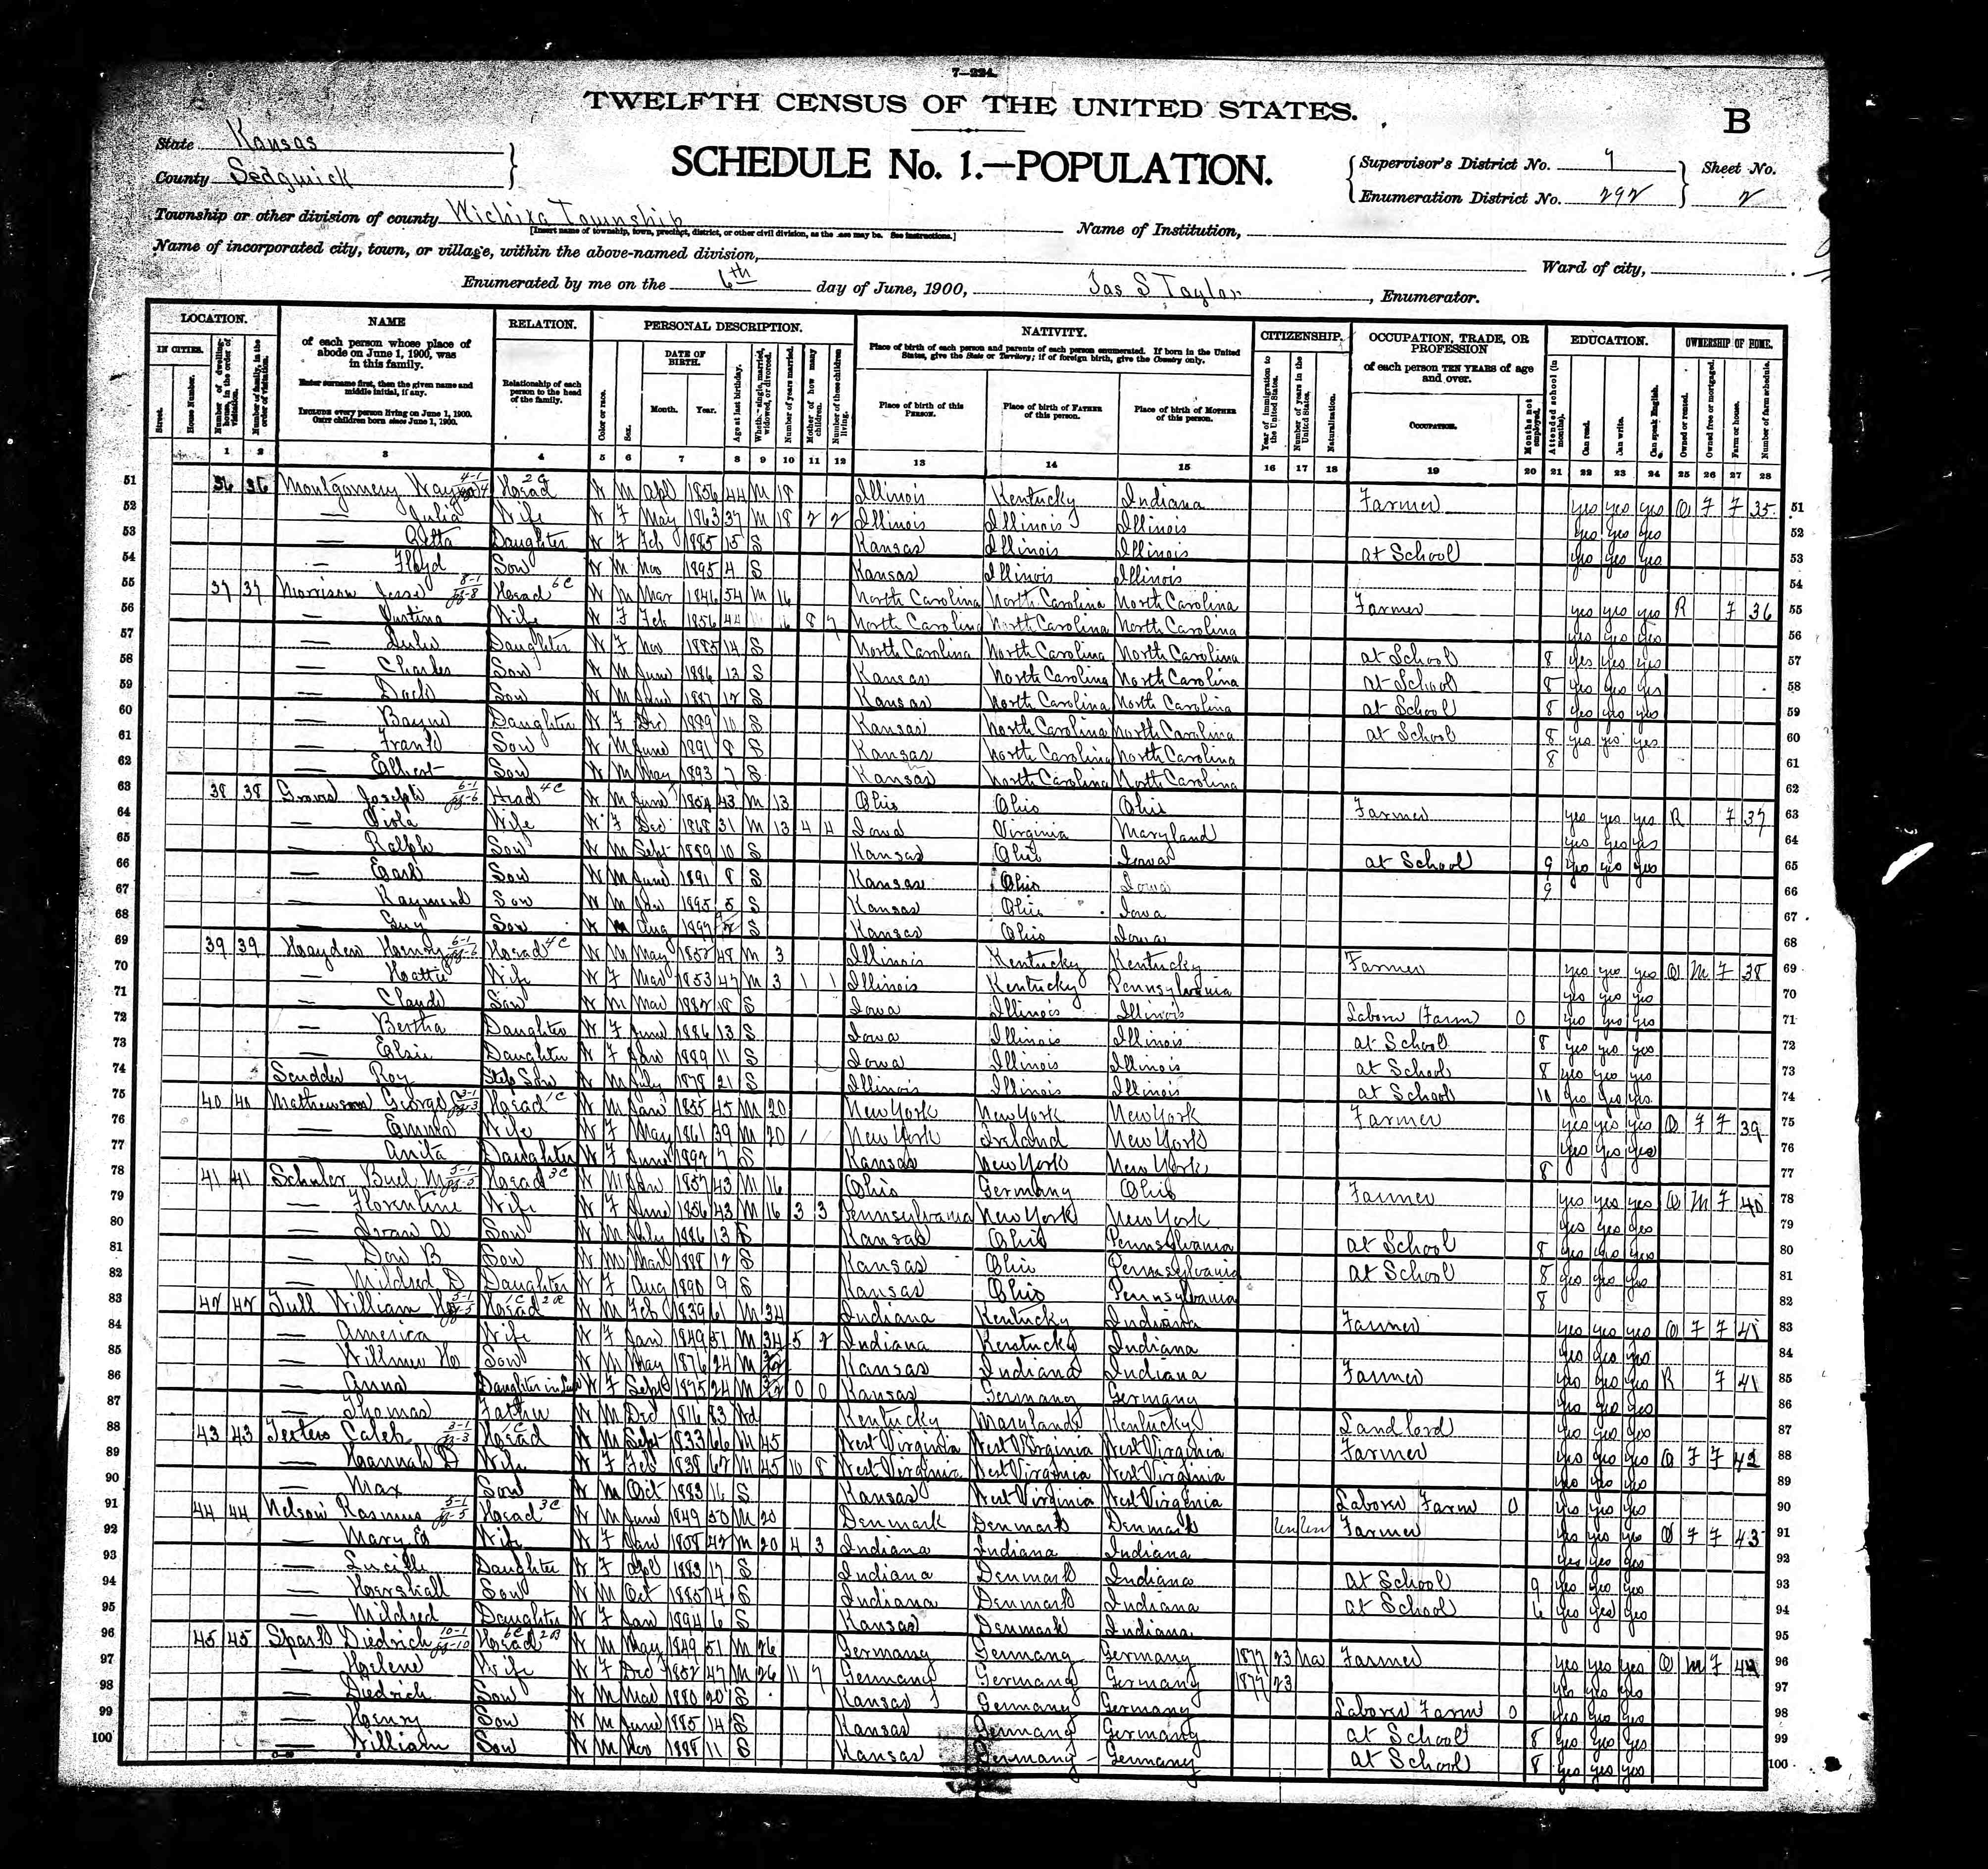 7—224.
TWELFTH CENSUS OF THE UNITED STATES.
B
State Kansas
County Sedgwick
SCHEDULE No. 1.—POPULATION.
Supervisor's District No. 7 Sheet No.
Enumeration District No. 292 2
Township or other division of county Wichita Township Name of Institution,
[Insert name of township, town, precinct, district, or other civil division, as the case may be. See instructions.]
Name of incorporated city, town, or village, within the above-named division, Ward of city,
Enumerated by me on the 6th day of June, 1900, Jas S Taylor, Enumerator.
LOCATION. NAME RELATION. PERSONAL DESCRIPTION. NATIVITY. CITIZENSHIP. OCCUPATION, TRADE, OR PROFESSION EDUCATION. OWNERSHIP OF HOME.
IN CITIES. of each person whose place of abode on June 1, 1900, was in this family.
Enter surname first, then the given name and middle initial, if any.
INCLUDE every person living on June 1, 1900. OMIT children born since June 1, 1900.
Relationship of each person to the head of the family.
DATE OF BIRTH. Month. Year.
Place of birth of each person and parents of each person enumerated. If born in the United States, give the State or Territory; if of foreign birth, give the Country only.
Place of birth of this PERSON. Place of birth of FATHER of this person. Place of birth of MOTHER of this person.
of each person TEN YEARS of age and over.
OCCUPATION.
1 2 3 4 5 6 7 8 9 10 11 12 13 14 15 16 17 18 19 20 21 22 23 24 25 26 27 28
51 36 36 Montgomery Head W M Apl 1856 44 M 18 Illinois Kentucky Indiana Farmer yes yes yes O F F 35 51
52 — Julia Wife W F May 1863 37 M 18 2 2 Illinois Illinois Illinois yes yes yes 52
53 — Daughter W F Feb 1885 15 S Kansas Illinois Illinois at School yes yes yes 53
54 — Floyd Son W M Nov 1895 4 S Kansas Illinois Illinois 54
55 37 37 Morrison Jesse Head W M Mar 1846 54 M 16 North Carolina North Carolina North Carolina Farmer yes yes yes R F 36 55
56 — Wife W F Feb 1856 44 8 7 North Carolina North Carolina North Carolina yes yes yes 56
57 — Lulu Daughter W F Nov 1885 14 S North Carolina North Carolina North Carolina at School 8 yes yes yes 57
58 — Charles Son W M June 1886 13 S Kansas North Carolina North Carolina at School 8 yes yes yes 58
59 — Son W M 1887 12 S Kansas North Carolina North Carolina at School 8 yes yes yes 59
60 — Daughter W F Dec 1889 10 S Kansas North Carolina North Carolina at School 8 yes yes yes 60
61 — Frank Son W M June 1891 8 S Kansas North Carolina North Carolina 8 61
62 — Elbert Son W M May 1893 7 S Kansas North Carolina North Carolina 62
63 38 38 Joseph Head W M June 43 M 13 Ohio Ohio Ohio Farmer yes yes yes R F 37 63
64 — Viola Wife W F Dec 1868 31 M 13 4 4 Iowa Virginia Maryland yes yes yes 64
65 — Ralph Son W M Sept 1889 10 S Kansas Ohio Iowa at School 9 yes yes yes 65
66 — Earl Son W M June 1891 8 S Kansas Ohio Iowa 9 66
67 — Raymond Son W M Jan 1895 5 S Kansas Ohio Iowa 67
68 — Guy Son W M Aug 1897 2 S Kansas Ohio Iowa 68
69 39 39 Hayden Henry Head W M May 1852 48 M 3 Illinois Kentucky Kentucky Farmer yes yes yes O M F 38 69
70 — Hattie Wife W F Mar 1853 47 M 3 1 1 Illinois Kentucky Pennsylvania yes yes yes 70
71 — Claude Son W M Mar 1882 18 S Iowa Illinois Illinois Labore Farm 0 yes yes yes 71
72 — Bertha Daughter W F June 1886 13 S Iowa Illinois Illinois at School 8 yes yes yes 72
73 — Elsie Daughter W F Jan 1889 11 S Iowa Illinois Illinois at School 8 yes yes yes 73
74 Scudder Roy Step Son W M July 1878 21 S Illinois Illinois Illinois at School 10 yes yes yes 74
75 40 40 Mathewson George Head W M Jan 1855 45 M 20 New York New York New York Farmer yes yes yes O F F 39 75
76 — Emma Wife W F May 1861 39 M 20 1 1 New York Ireland New York yes yes yes 76
77 — Anita Daughter W F June 1892 7 S Kansas New York New York 8 77
78 41 41 Schuler Buel Head W M Jan 1857 43 M 16 Ohio Germany Ohio Farmer yes yes yes O M F 40 78
79 — Florentine Wife W F June 1856 43 M 16 3 3 Pennsylvania New York New York yes yes yes 79
80 — Son W M July 1886 13 S Kansas Ohio Pennsylvania at School 8 yes yes yes 80
81 — Don B Son W M Mar 1888 12 S Kansas Ohio Pennsylvania at School 8 yes yes yes 81
82 — Mildred D Daughter W F Aug 1890 9 S Kansas Ohio Pennsylvania 8 82
83 42 42 Tull William Head W M Feb 1839 61 M 34 Indiana Kentucky Indiana Farmer yes yes yes O F F 41 83
84 — America Wife W F Jan 1849 51 M 34 5 2 Indiana Kentucky Indiana yes yes yes 84
85 — Son W M May 1876 24 M Kansas Indiana Indiana Farmer yes yes yes R F 41 85
86 — Anna Daughter in Law W F Sept 1875 24 M 0 0 Kansas Germany Germany yes yes yes 86
87 — Thomas Father W M Dec 1816 83 Wd Kentucky Maryland Kentucky Landlord yes yes yes 87
88 43 43 Teeters Caleb Head W M Sept 1833 66 M 45 West Virginia West Virginia West Virginia Farmer yes yes yes O F F 42 88
89 — Hannah Wife W F Feb 1838 62 M 45 10 8 West Virginia West Virginia West Virginia yes yes yes 89
90 — Max Son W M Oct 1883 16 S Kansas West Virginia West Virginia Labore Farm 0 yes yes yes 90
91 44 44 Nelson Rasmus Head W M June 1849 50 M 20 Denmark Denmark Denmark Un Un Farmer yes yes yes O F F 43 91
92 — Mary E Wife W F Jan 1858 42 M 20 4 3 Indiana Indiana Indiana yes yes yes 92
93 — Lucille Daughter W F Apl 1883 17 S Indiana Denmark Indiana at School 9 yes yes yes 93
94 — Hershall Son W M Oct 1885 14 S Indiana Denmark Indiana at School 6 yes yes yes 94
95 — Mildred Daughter W F Jan 1894 6 S Kansas Denmark Indiana 95
96 45 45 Diedrich Head W M May 1849 51 M 26 Germany Germany Germany 1877 23 Na Farmer yes yes yes O M F 44 96
97 — Helene Wife W F Dec 1852 47 M 26 11 7 Germany Germany Germany 1877 23 yes yes yes 97
98 — Diedrich Son W M Mar 1880 20 S Kansas Germany Germany Labore Farm 0 yes yes yes 98
99 — Henry Son W M June 1885 14 S Kansas Germany Germany at School 8 yes yes yes 99
100 — William Son W M Nov 1888 11 S Kansas Germany Germany at School 8 yes yes yes 100